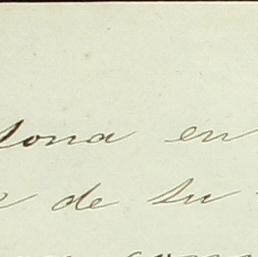 sona en
de su